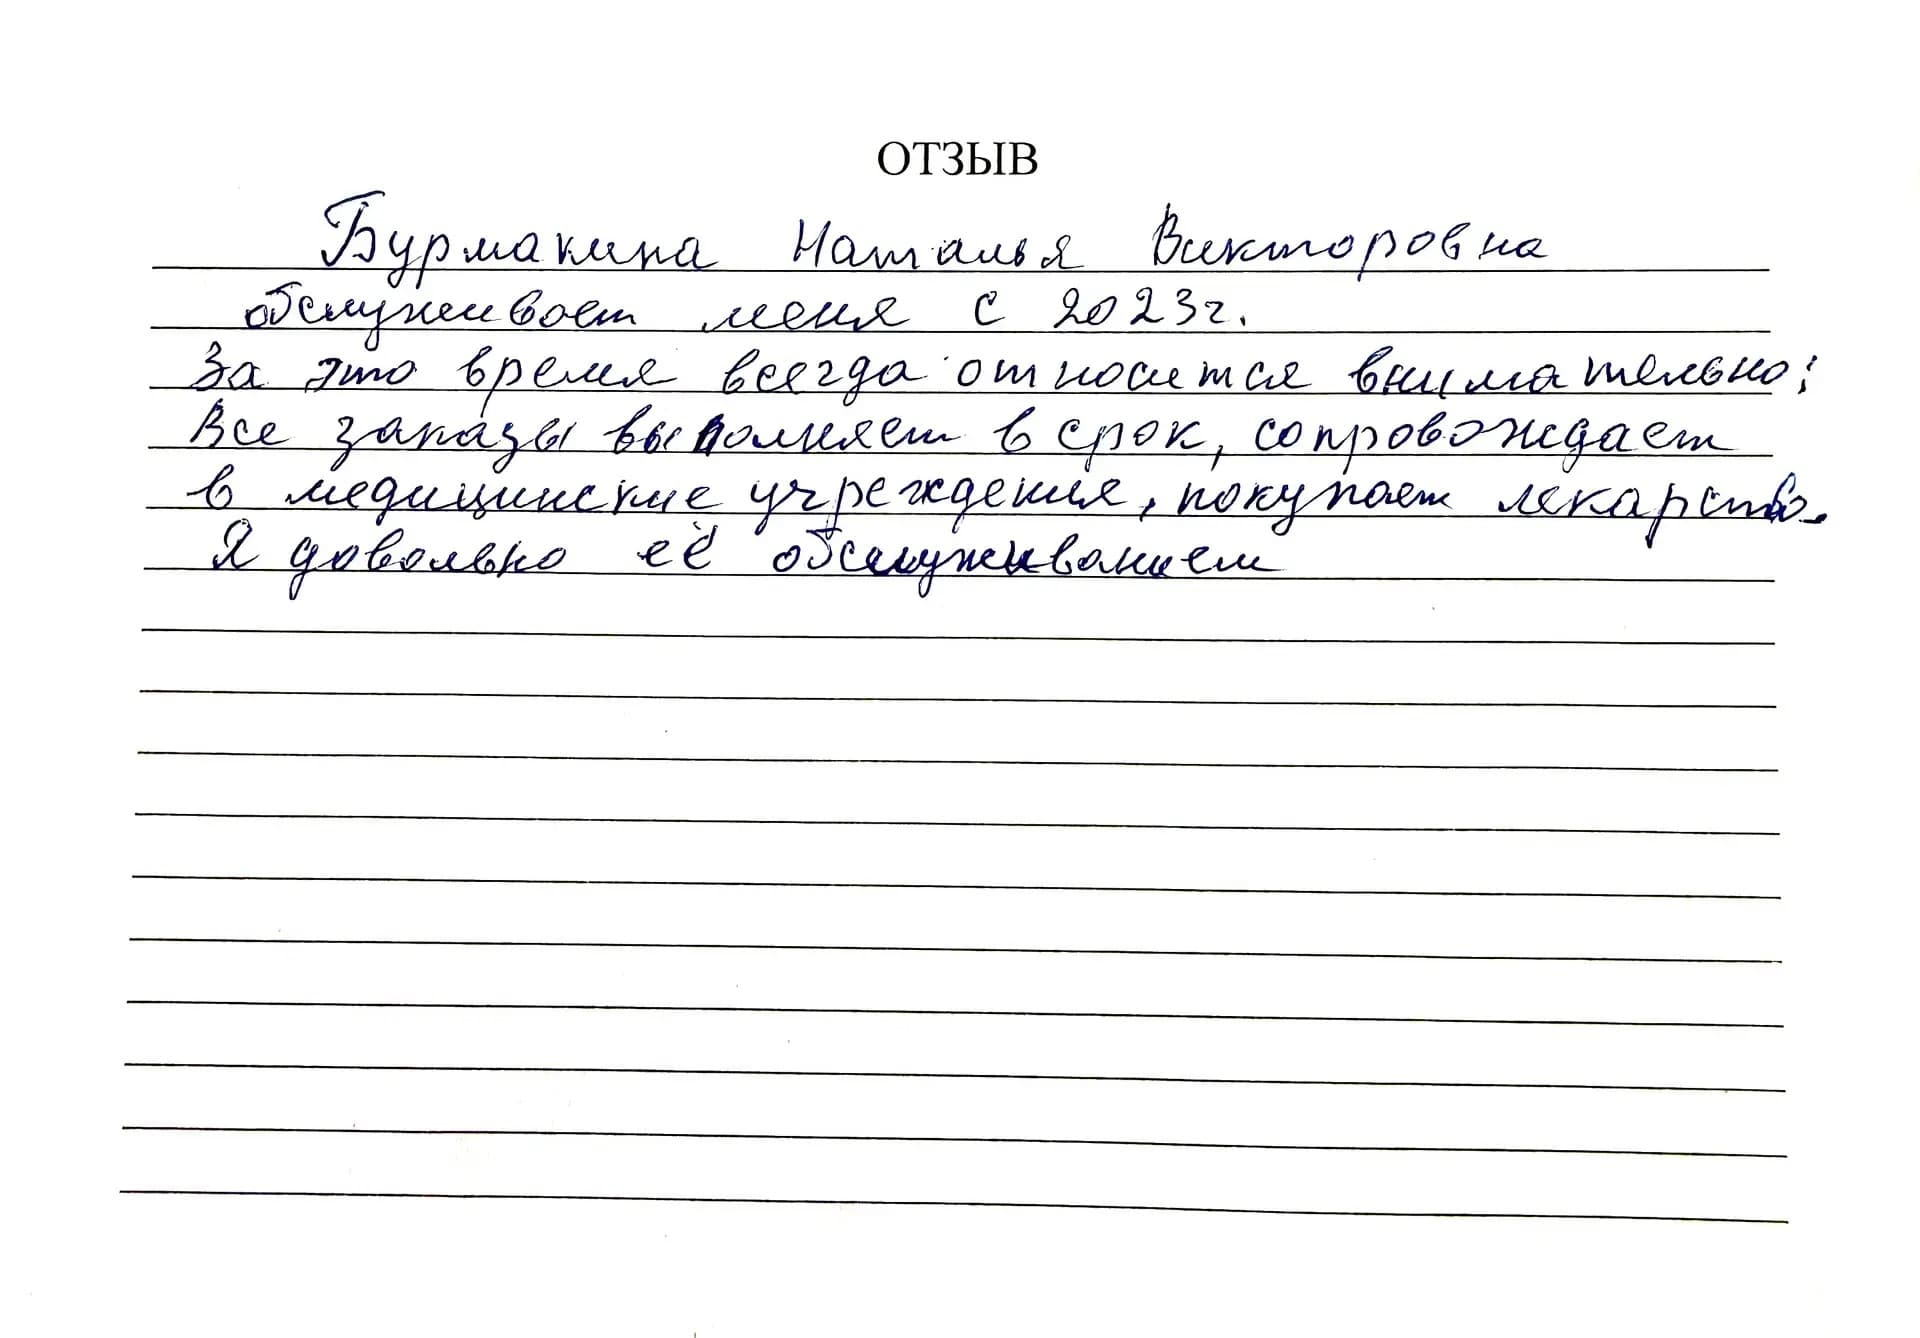 ОТЗЫВ
Бурмакина Наталья Викторовна
обслуживает меня с 2023г.
За это время всегда относится внимательно:
Все заказы выполняет в срок, сопровождает
в медицинские учреждения, покупает лекарство.
Я довольно её обслуживанием